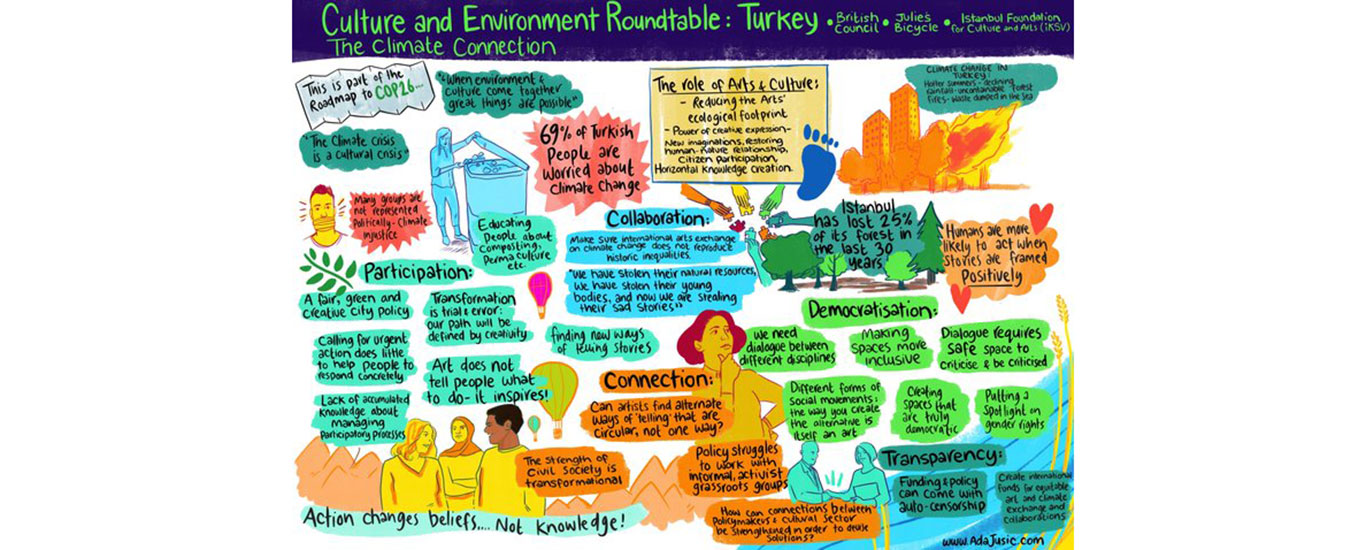 Culture and Environment Roundtable: Turkey
• British Council • Julie's Bicycle • Istanbul Foundation for Culture and Arts (iKSV)
The Climate Connection
This is part of the
Roadmap to COP26...
"When environment &
culture come together
great things are possible"
"The Climate crisis
is a cultural crisis"
69% of Turkish
People are
worried about
Climate Change
The role of Arts & Culture:
- Reducing the Arts'
ecological footprint
- Power of creative expression-
New imaginations, restoring
human-nature relationship,
Citizen participation,
Horizontal knowledge creation.
CLIMATE CHANGE IN
TURKEY:
Hotter summers - declining
rainfall - uncontainable forest
fires - waste dumped in the sea
Many groups are
not represented
Politically - Climate
injustice
Educating
People about
composting,
Permaculture
etc.
Collaboration:
Make sure international arts exchange
on climate change does not reproduce
historic inequalities.
"We have stolen their natural resources,
we have stolen their young
bodies, and now we are stealing
their sad stories"
Istanbul
has lost 25%
of its forest in
the last 30
years
Humans are more
likely to act when
stories are framed
Positively
Participation:
A fair, green and
creative city policy
Transformation
is trial & error:
our path will be
defined by creativity
Calling for urgent
action does little
to help people to
respond concretely
Art does not
tell people what
to do - it inspires!
Lack of accumulated
knowledge about
managing
Participatory processes
finding new ways
of telling stories
Democratisation:
We need
dialogue between
different disciplines
Making
spaces more
inclusive
Dialogue requires
safe space to
criticise & be criticised
Different forms of
Social movements:
the way you create
the alternative is
itself an art
Creating
spaces that
are truly
democratic
Putting a
spotlight on
gender rights
Connection:
Can artists find alternate
ways of 'telling' that are
circular, not one way?
Policy struggles
to work with
informal, activist
grassroots groups
How can connections between
Policymakers & Cultural Sector
be strengthened in order to devise
solutions?
The strength of
Civil Society is
transformational
Transparency:
Funding & policy
can come with
auto-censorship
Create international
funds for equitable
art and climate
exchange and
collaborations
Action changes beliefs.... Not knowledge!
www.AdaJusic.com